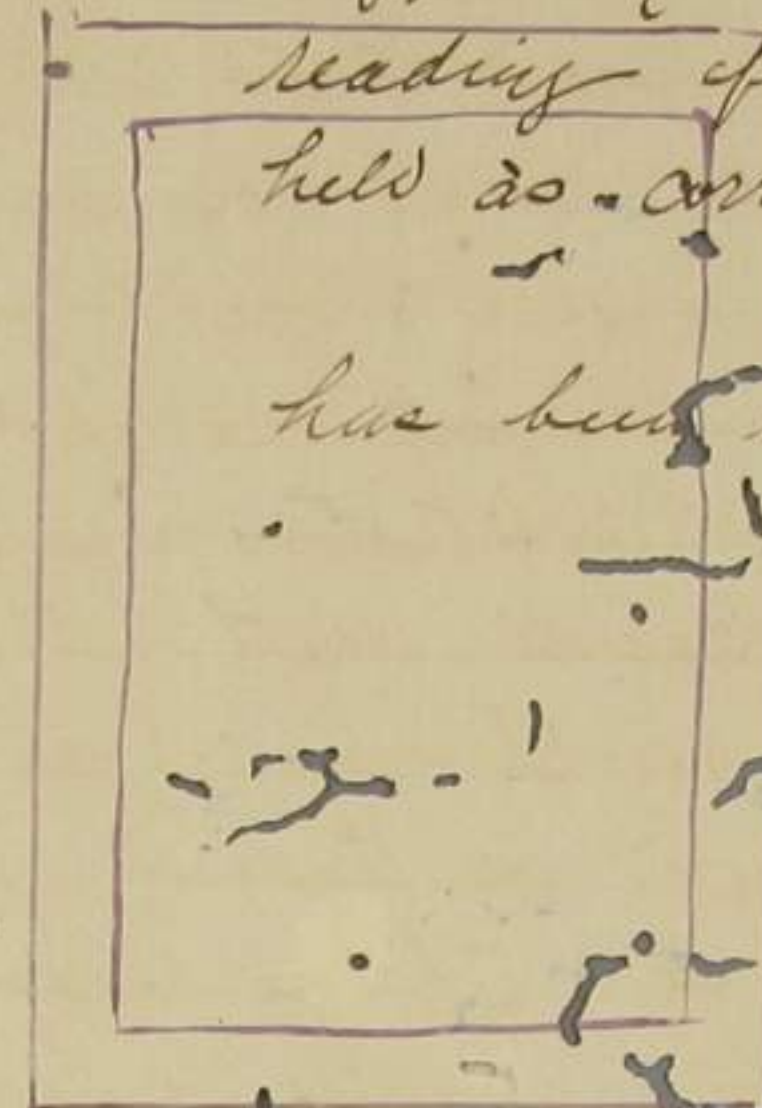 reading of
held as
has been